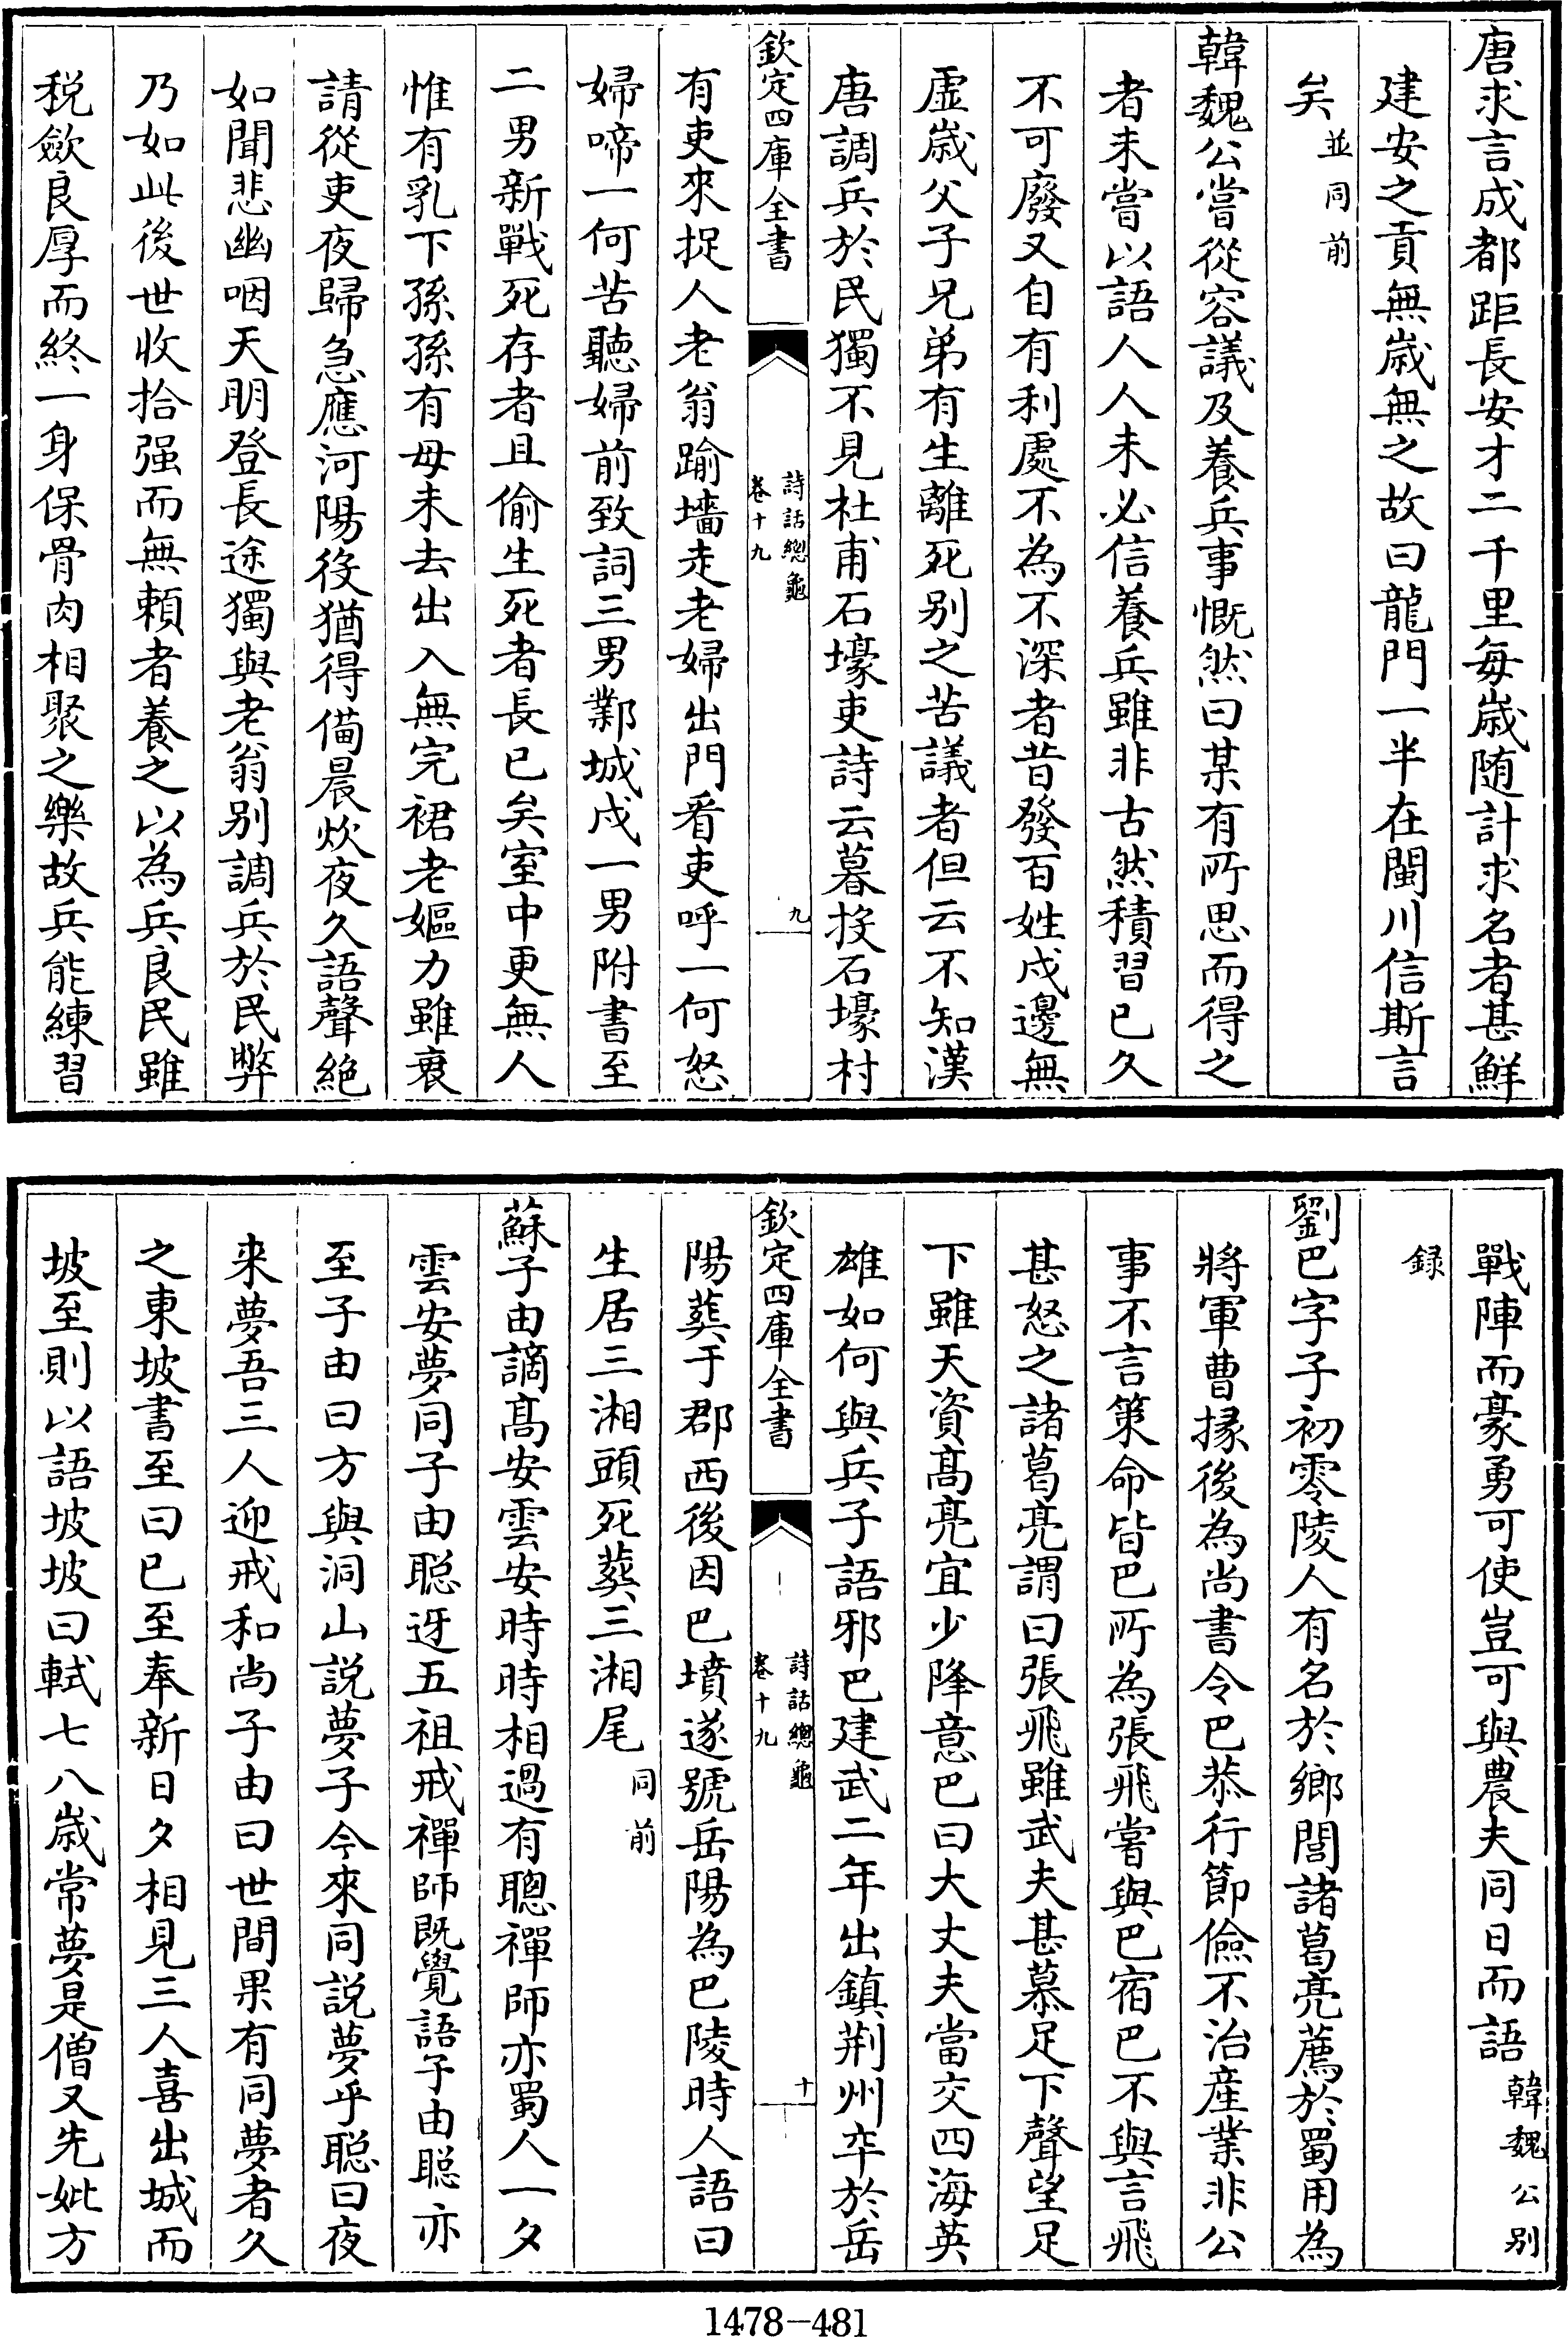 唐求言成都距長安才二千里每歲隨計求名者甚鮮
建安之貢無歲無之故曰龍門一半在閩川信斯言
矣並同前
韓魏公嘗從容議及養兵事慨然曰某有所思而得之
者未嘗以語人人未必信養兵雖非古然積習已久
不可廢又自有利處不為不深者昔發百姓戍邊無
虛歲父子兄弟有生離死别之苦議者但云不知漢
唐調兵於民獨不見杜甫石壕吏詩云暮投石壕村
欽定四庫全書
詩話總龜
卷十九
九
有吏來捉人老翁踰墻走老婦出門看吏呼一何怒
婦啼一何苦聽婦前致詞三男鄴城戍一男附書至
二男新戰死存者且偷生死者長已矣室中更無人
惟有乳下孫孫有母未去出入無完裙老嫗力雖衰
請從吏夜歸急應河陽役猶得備晨炊夜久語聲絶
如聞悲幽咽天明登長途獨與老翁别調兵於民弊
乃如此後世收拾强而無賴者養之以為兵良民雖
税歛良厚而終一身保骨肉相聚之樂故兵能練習
戰陣而豪勇可使豈可與農夫同日而語韓魏公别
録
劉巴字子初零陵人有名於鄉閭諸葛亮薦於蜀用為
將軍曹掾後為尚書令巴恭行節儉不治産業非公
事不言策命皆巴所為張飛嘗與巴宿巴不與言飛
甚怒之諸葛亮謂曰張飛雖武夫甚慕足下聲望足
下雖天資髙亮宜少降意巴曰大丈夫當交四海英
雄如何與兵子語邪巴建武二年出鎮荆州卒於岳
欽定四庫全書
詩話總龜
卷十九
十
陽葬于郡西後因巴墳遂號岳陽為巴陵時人語曰
生居三湘頭死葬三湘尾同前
蘇子由謫髙安雲安時時相過有聰禪師亦蜀人一夕
雲安夢同子由聪迓五祖戒禪師既覺語子由聪亦
至子由曰方與洞山説夢子今來同説夢乎聪曰夜
来夢吾三人迎戒和尚子由曰世間果有同夢者久
之東坡書至曰已至奉新日夕相見三人喜出城而
坡至則以語坡坡曰軾七八歲常夢是僧又先妣方
1478-481